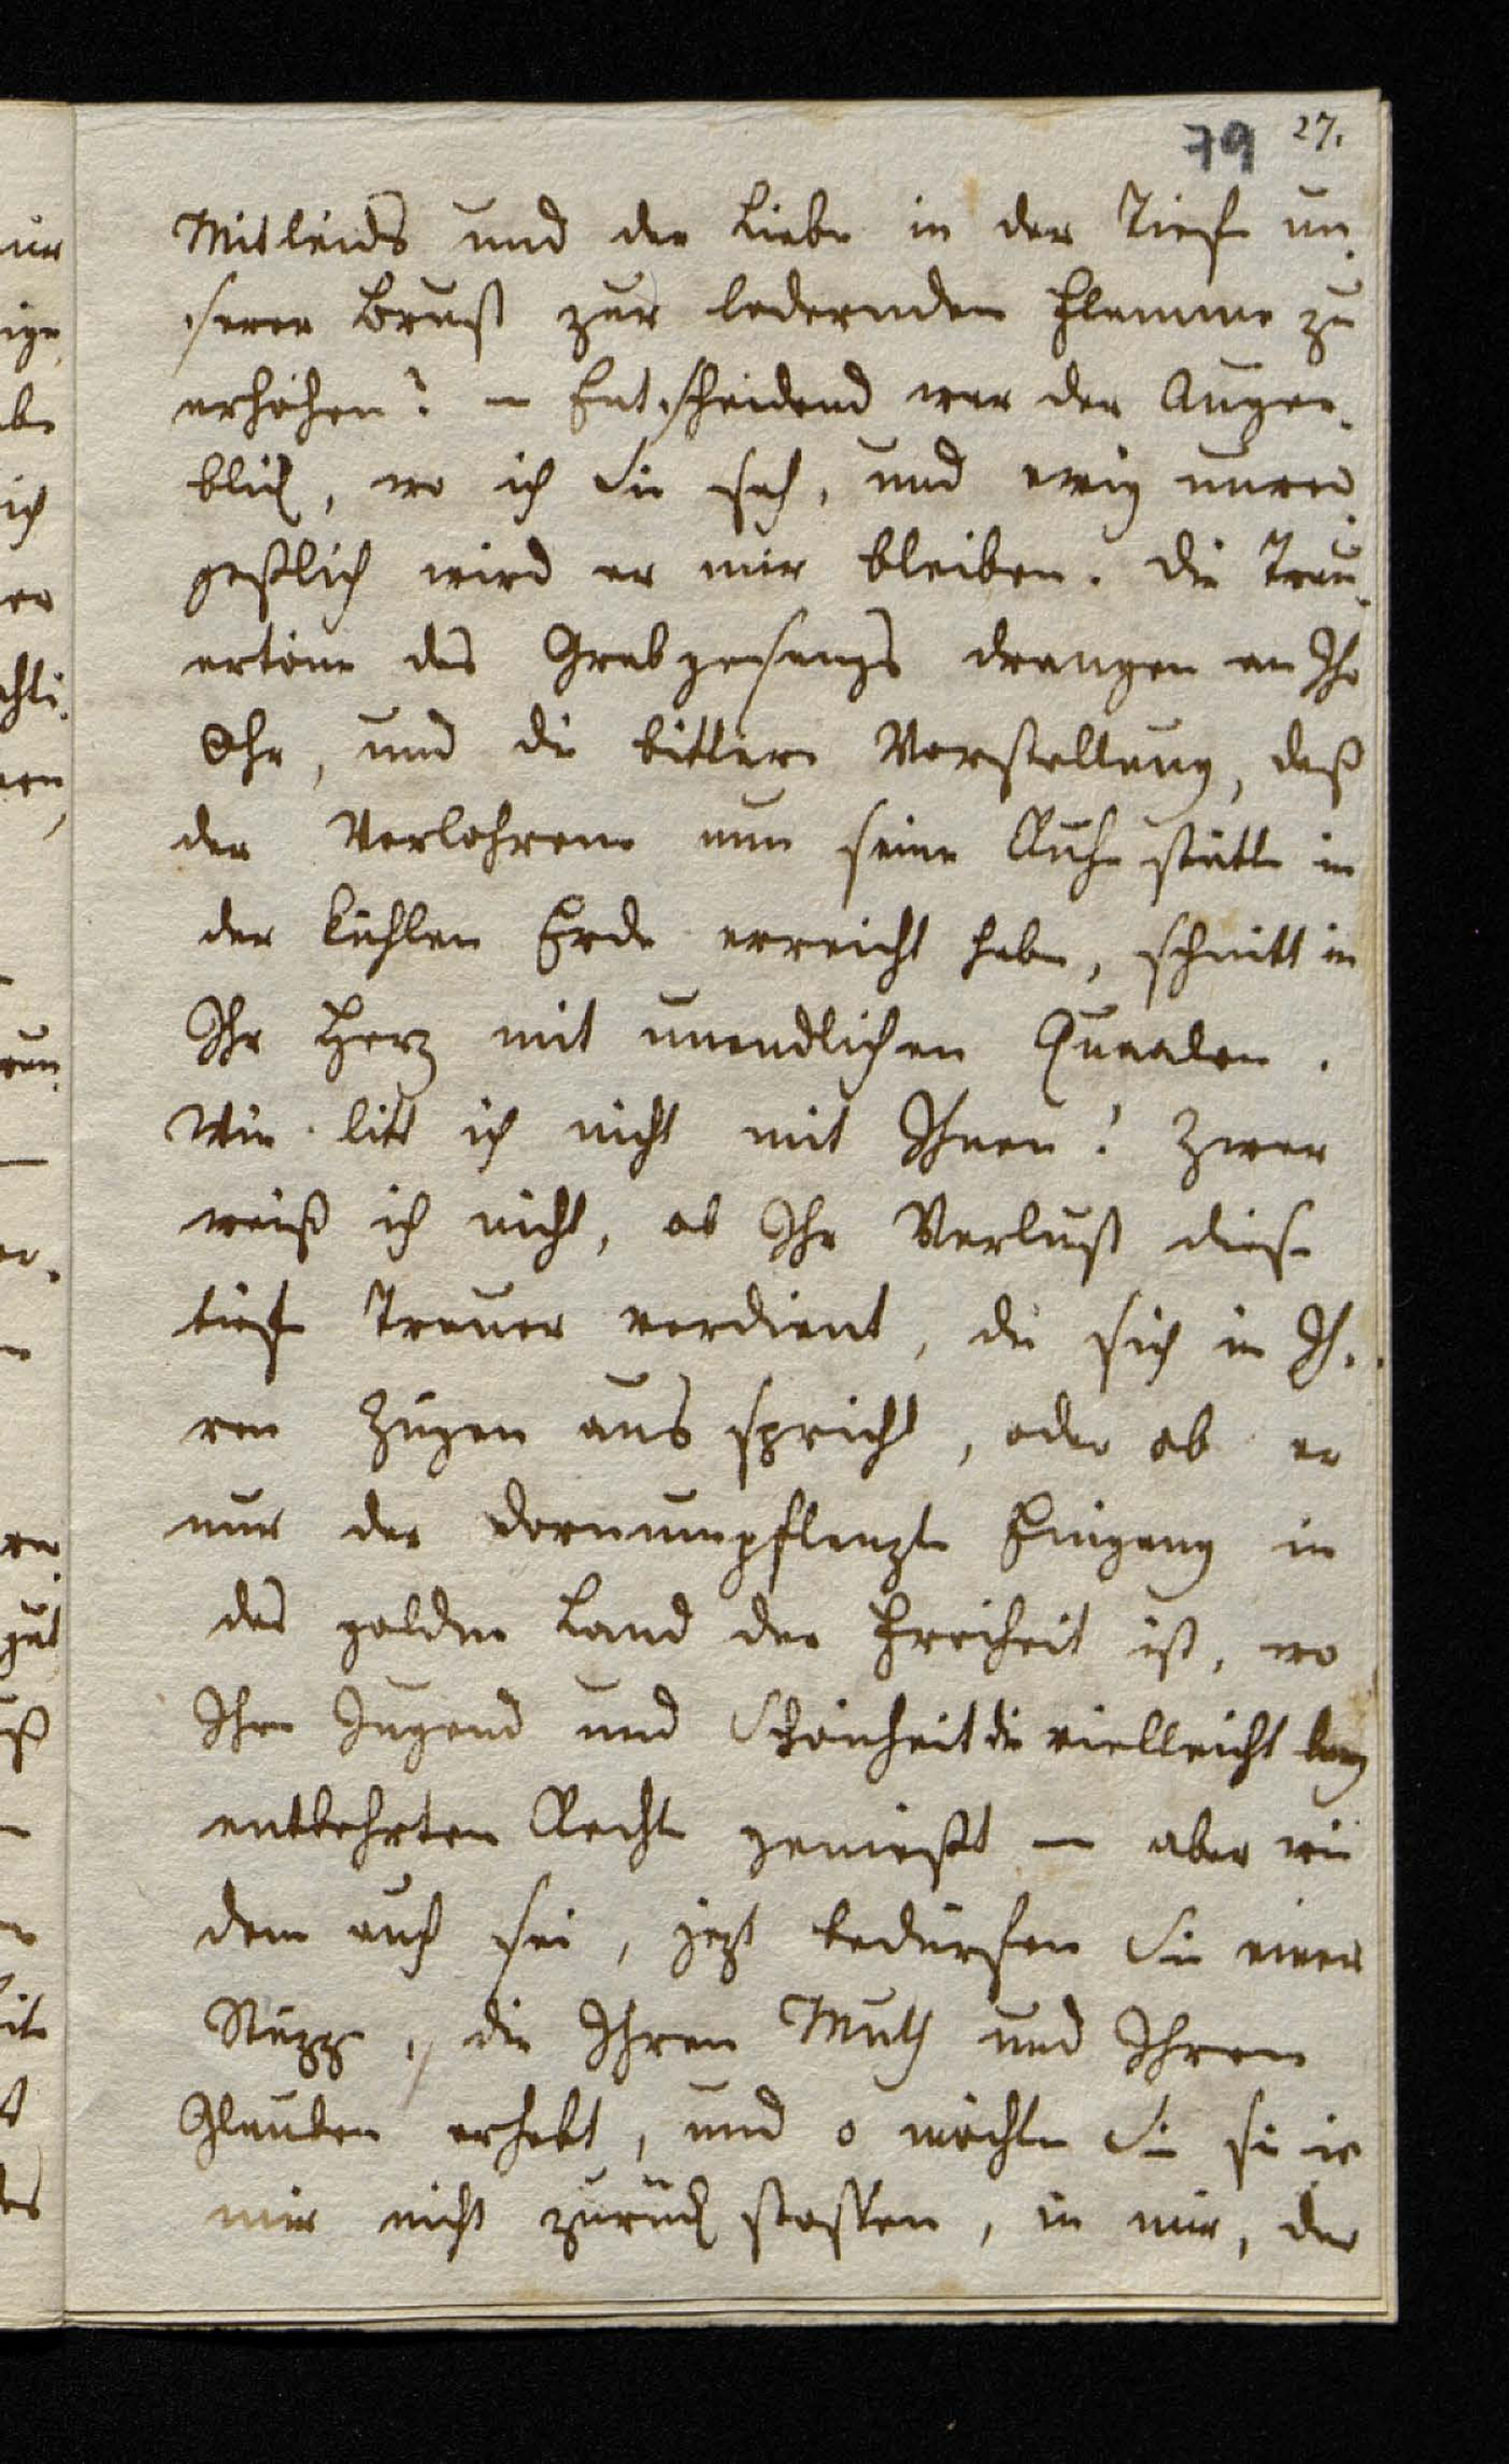 79 27.
Mitleids und der Liebe in der Tiefe un-
serer Brust zur lodernden Flamme zu
erhöhen? – Entscheidend war der Augen-
blick, wo ich Sie sah, und ewig unver-
geßlich wird er mir bleiben. Die Trau-
ertöne des Grabgesangs drangen an Ihr
Ohr, und die bittere Vorstellung, daß
der Verlohrene nun seine Ruhestätte in
der kühlen Erde erreicht habe, schnitt in
Ihr Herz mit unendlichen Quaalen.
Wie litt ich nicht mit Ihnen! Zwar
weiß ich nicht, ob Ihr Verlust diese
tiefe Trauer verdient, die sich in Ih-
ren Zügen ausspricht, oder ob er
nur der dornumpflanzte Eingang in
das goldne Land der Freiheit ist, wo
Ihre Jugend und Schönheit die vielleicht lang
entbehrten Rechte genießt – aber wie
dem auch sei, jezt bedürfen Sie einer
Stüzze, die Ihren Muth und Ihren
Glauben erhebt, und o möchten Sie sie in
mir nicht zurück stossen, in mir, der